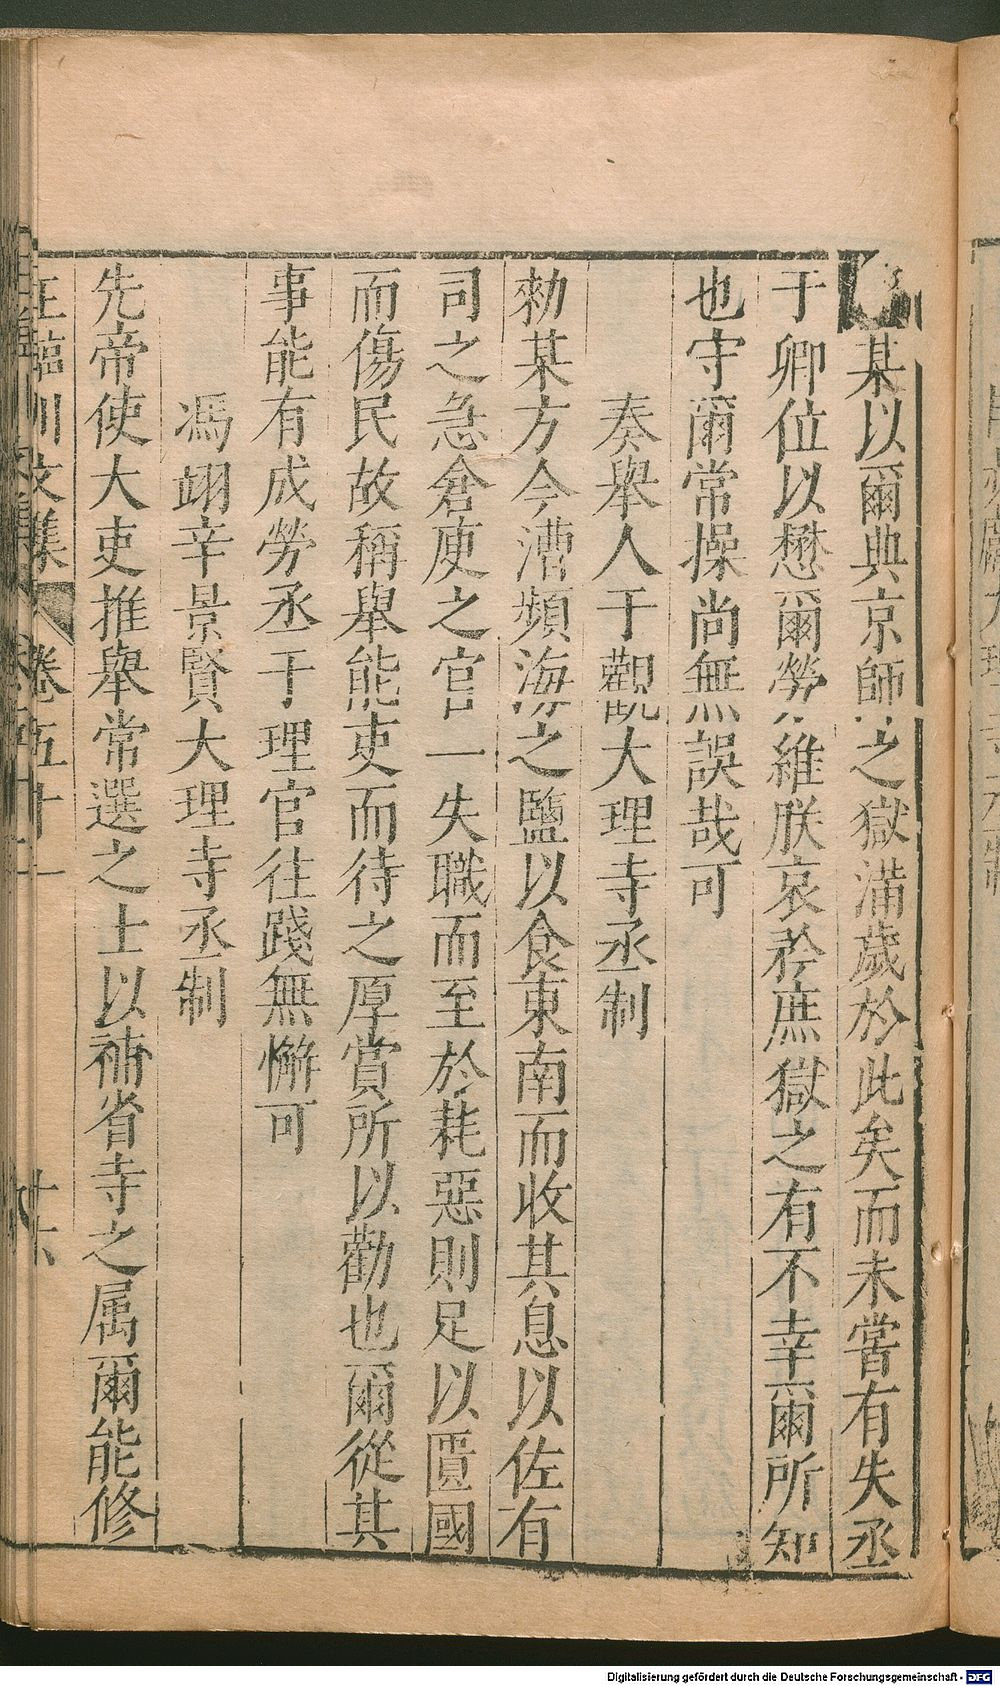 某以爾典京師之獄滿歲於此矣而未嘗有失丞
于卿位以懋爾勞維朕哀矜庶獄之有不幸爾所知
也守爾常操尚無誤哉可
奏舉人于觀大理寺丞制
勑某方今漕瀕海之鹽以食東南而收其息以佐有
司之急倉庾之官一失職而至於耗惡則足以匱國
而傷民故稱舉能吏而待之厚賞所以勸也爾從其
事能有成勞丞于理官往踐無懈可
馮翊辛景賢大理寺丞制
先帝使大吏推舉常選之士以補省寺之属爾能修
王臨川文集 卷五十二 十六
Digitalisierung gefördert durch die Deutsche Forschungsgemeinschaft - DFG